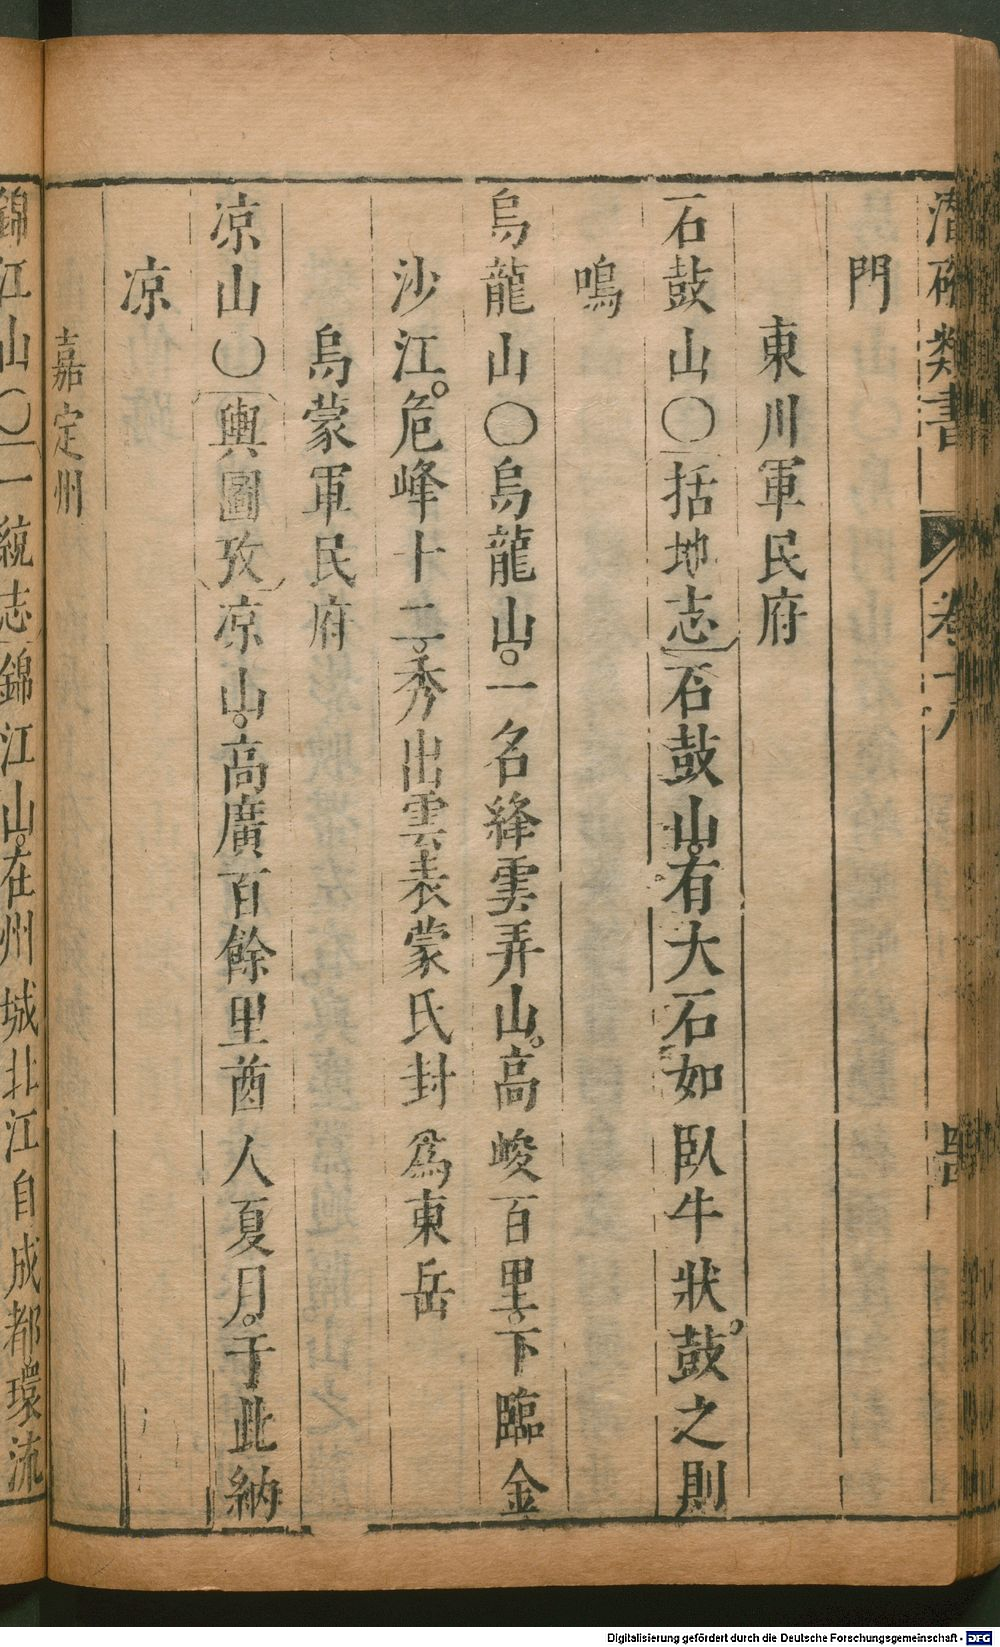 潛確類書 卷十八
門
東川軍民府
石鼓山〇括地志石鼓山有大石如臥牛狀鼓之則
鳴
烏龍山〇烏龍山一名絳雲弄山高峻百里下臨金
沙江危峰十二秀出雲表蒙氏封爲東岳
烏蒙軍民府
凉山〇輿圖攷凉山高廣百餘里酋人夏月于此納
凉
嘉定州
錦江山〇一統志錦江山在州城北江自成都環流
Digitalisierung gefördert durch die Deutsche Forschungsgemeinschaft - DFG